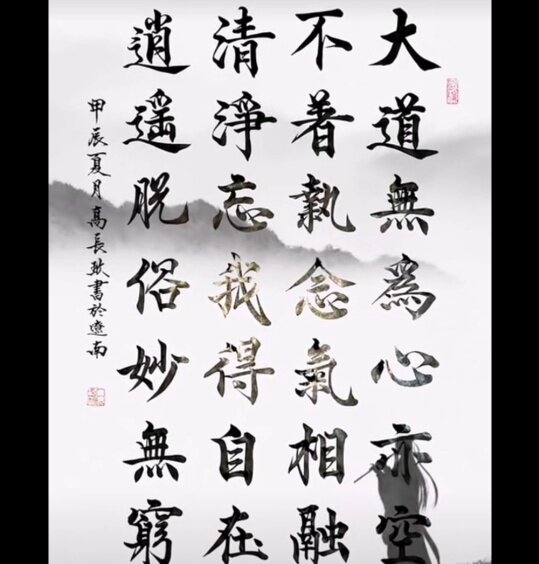 大道無為心亦空
不著執念氣相融
清淨忘我得自在
逍遥脱俗妙無窮
甲辰夏月高長歌書於遼南